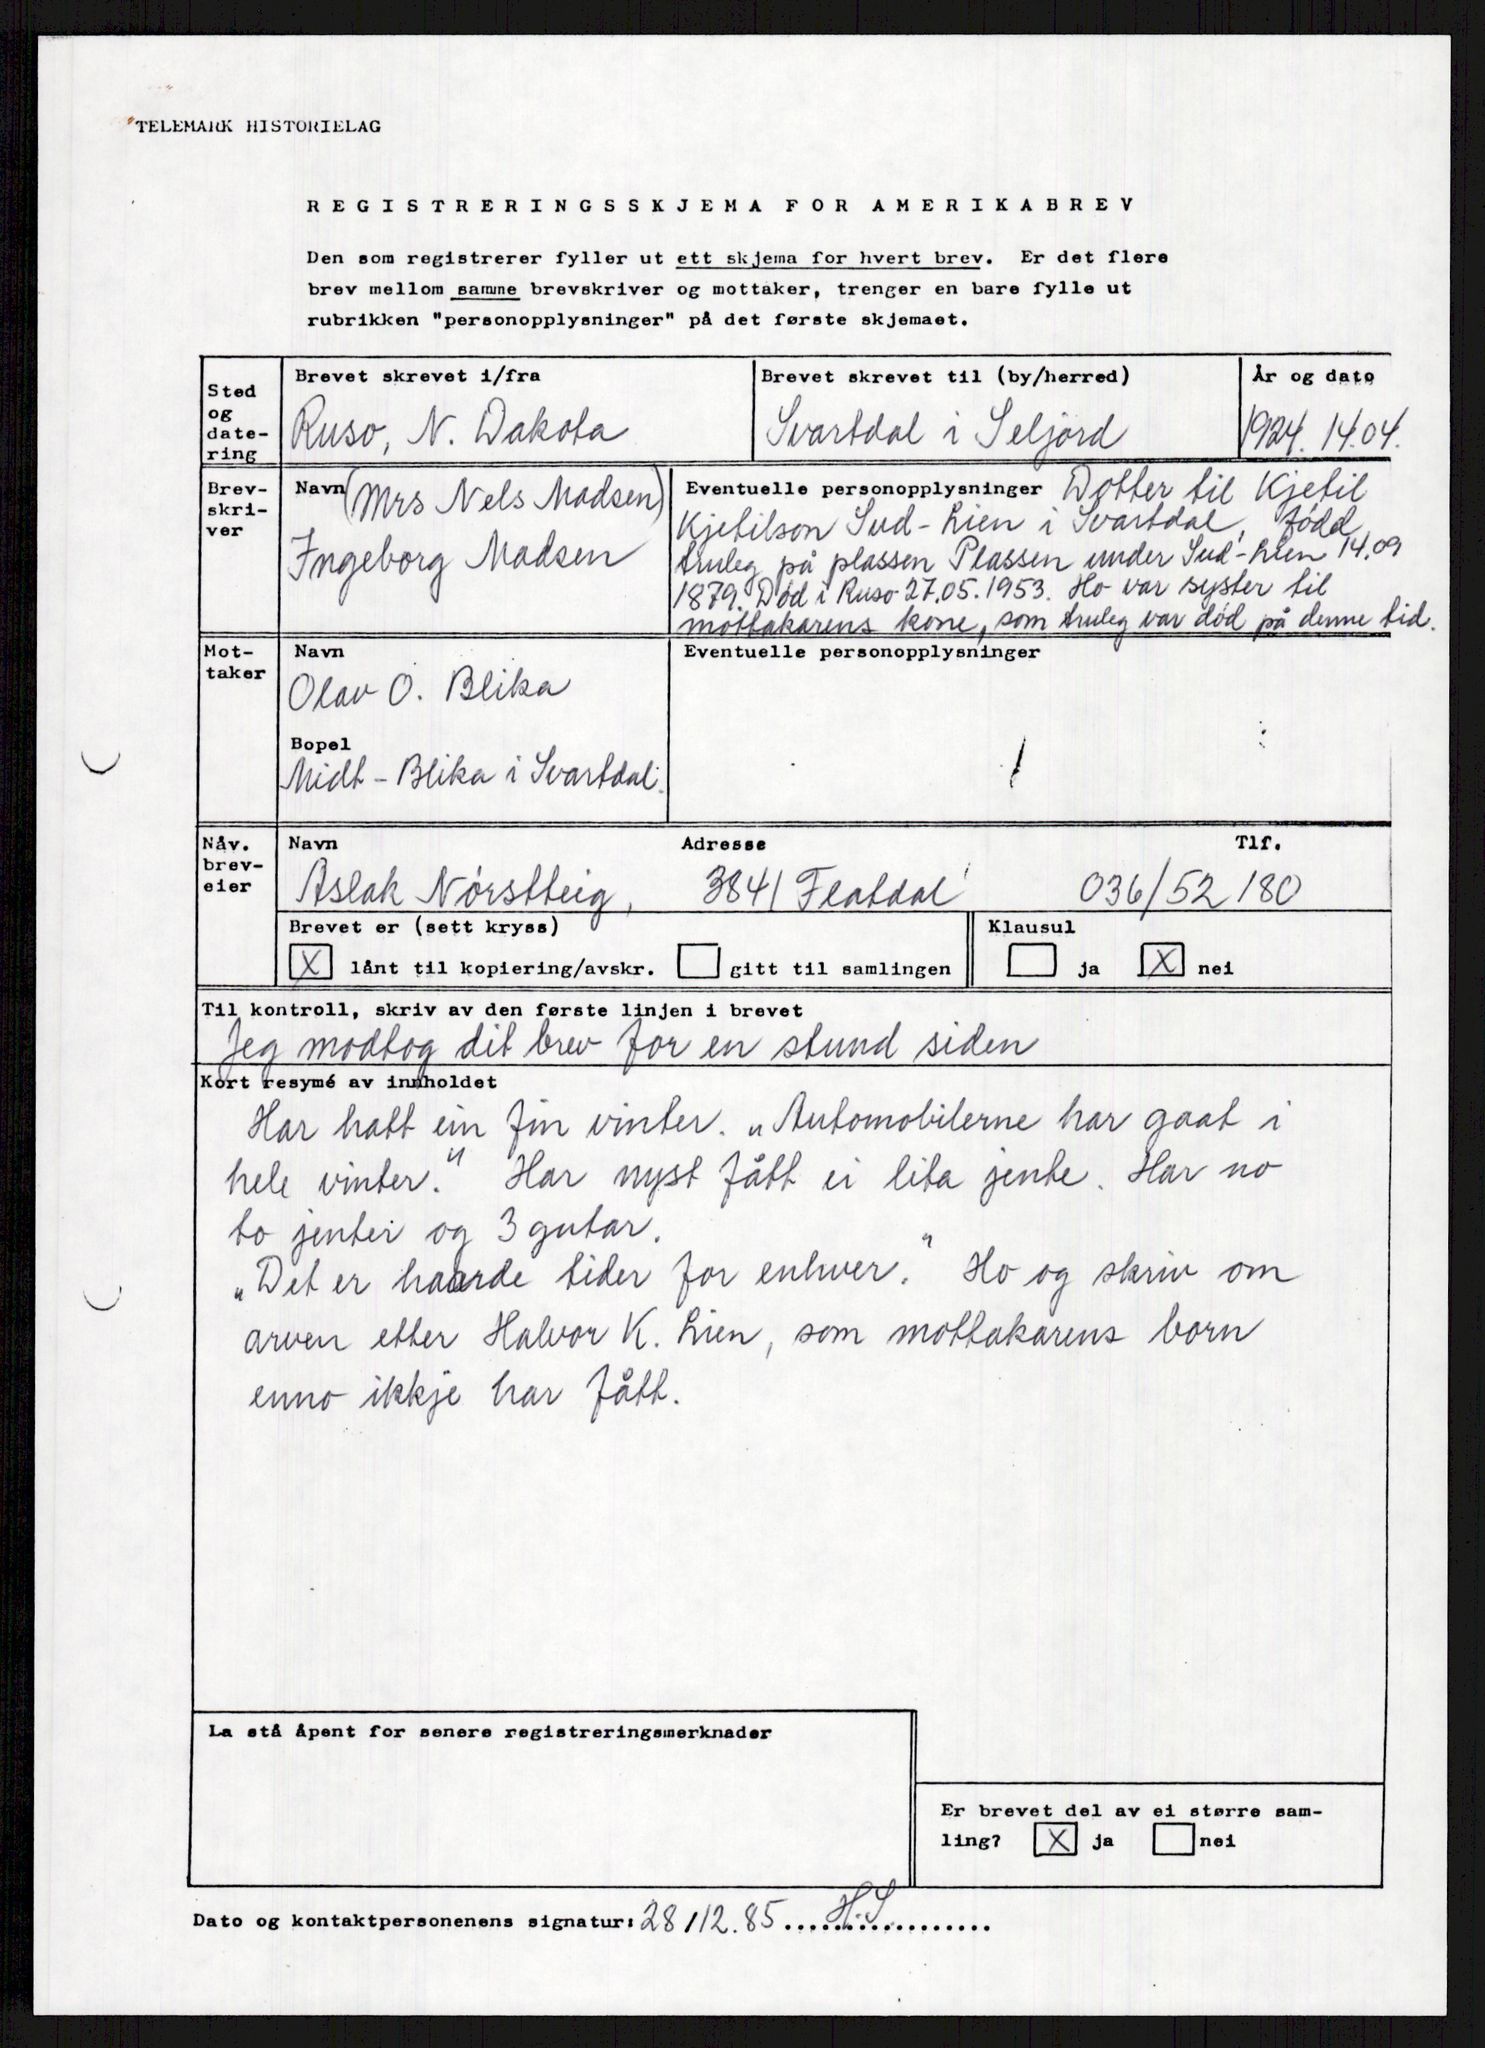 "TELEMARK HISTORIELAG
REGISTRERINGSSKJEMA FOR AMERIKABREV
Den som registrerer fyller ut ett skjema for hvert brev. Er det flere
brev mellom samme brevskriver og mottaker, trenger en bare fylle ut
rubrikken "personopplysninger" på det første skjemaet.
Sted
og
date-
ring
Brevet skrevet i/fra
Ruso, N. Dakota
Brevet skrevet til (by/herred)
Svartdal i Seljord
År og dato
1924. 14.04.
Brev-
skri-
ver
Navn (Mrs Nels Madsen)
Ingeborg Madsen
Eventuelle personopplysninger Dotter til Kjetil
Kjetilson Sud-Lien i Svartdal, fødd
truleg på plassen Plassen under Sud-Lien 14.09
1879. Død i Ruso 27.05.1953. Ho var syster til
mottakarens kone, som truleg var død på denne tid.
Mot-
taker
Navn
Olav O. Blika
Bopel
Midt-Blika i Svartdal.
Eventuelle personopplysninger
Nåv.
brev-
eier
Navn
Aslak Nørstteig,
Adresse
3841 Flatdal
Tlf.
036/52 180
Brevet er (sett kryss)
X lånt til kopiering/avskr. gitt til samlingen
Klausul
ja X nei
Til kontroll, skriv av den første linjen i brevet
Jeg modtog dit brev for en stund siden
Kort resymé av innholdet
Har hatt ein fin vinter. "Automobilerne har gaat i
hele vinter." Har nyst fått ei lita jente. Har no
to jenter og 3 gutar.
"Det er haarde tider for enhver." Ho og skriv om
arven etter Halvor K. Lien, som mottakarens born
enno ikkje har fått.
La stå åpent for senere registreringsmerknader
Er brevet del av ei større sam-
ling? X ja nei
Dato og kontaktpersonenens signatur: 28/12.85 H.S.